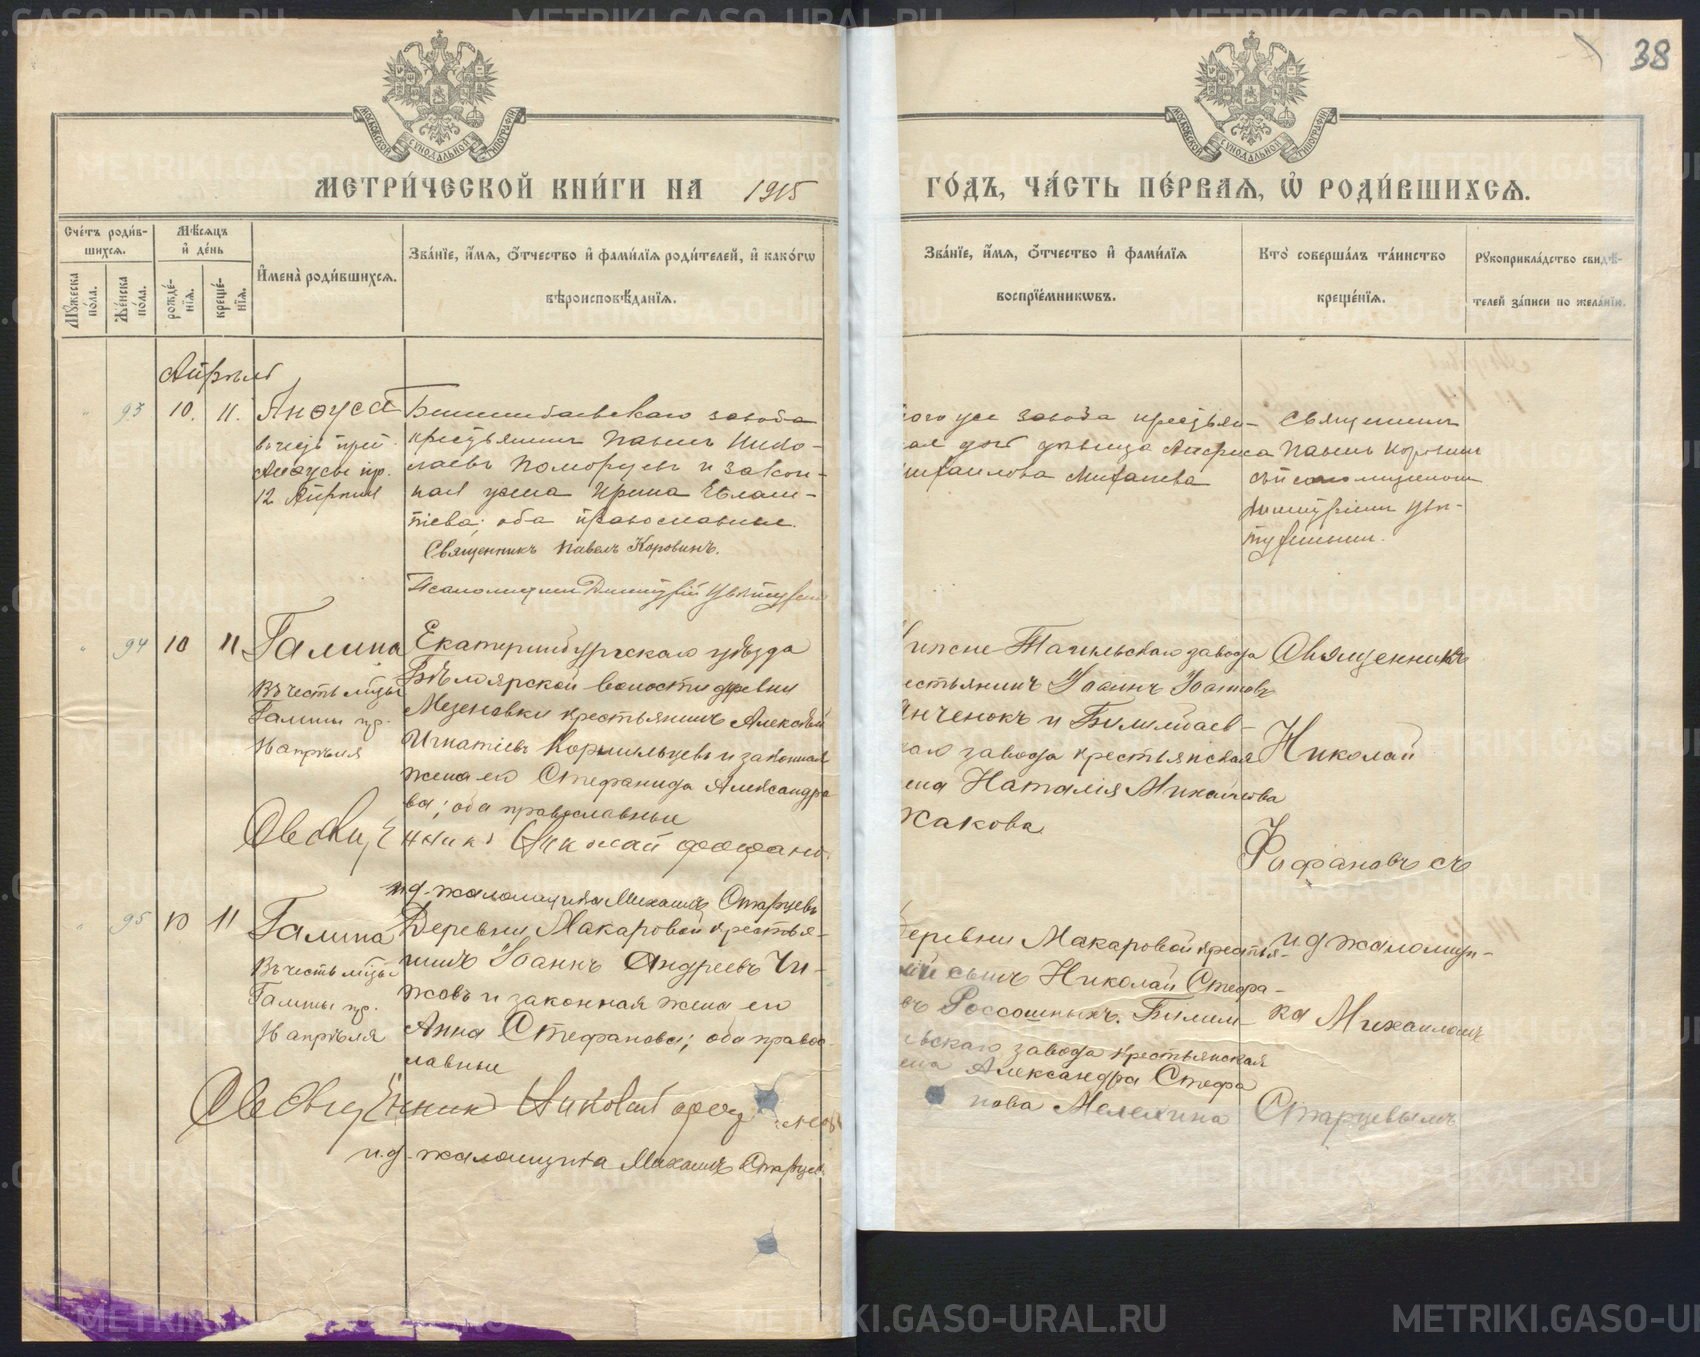 38
МОСКОВСКОЙ СУНОДАЛЬНОЙ ТИПОГРАФIИ
МОСКОВСКОЙ СУНОДАЛЬНОЙ ТИПОГРАФIИ
МЕТРИ́ЧЕСКОЙ КНИ́ГИ НА 1915
ГО́ДЪ, ЧА́СТЬ ПЕ́РВАѦ, Ѡ҆ РОДИ́ВШИХСѦ.
Сче́тъ роди́в-
шихсѧ.
Мꙋ́жеска по́ла.
Же́нска по́ла.
Мѣ́сѧцъ
и҆ де́нь
рожде́-нїѧ.
креще́-нїѧ.
И҆мена̀ роди́вшихсѧ.
Зва́нїе, и҆́мѧ, ѻ҆́тчество и҆ фами́лїѧ роди́телей, и҆ како́гѡ
вѣроисповѣ́данїѧ.
Зва́нїе, и҆́мѧ, ѻ҆́тчество и҆ фами́лїѧ
воспрїе́мникѡвъ.
Кто̀ соверша́лъ та́инство
креще́нїѧ.
Рꙋкоприкла́дство свидѣ́-
телей за́писи по жела́нїю.
Апрѣль
93 10. 11. Анфуса
въ честь преп.
Анфусы пр.
12 Апрѣля
Билимбаевскаго завода
крестьянинъ Павелъ Нико-
лаевъ Поморцевъ и закон-
ная жена Ирина Евлам-
піева; оба православные.
Священникъ Павелъ Коровинъ.
Псаломщикъ Димитрій
того же завода крестьян-
ская дѣвица
Михаилова
Священникъ
Павелъ Коровинъ
съ псаломщикомъ
Димитріемъ
94 10 11 Галина
Въ честь м҃цы
Галины пр.
16 апрѣля
Екатеринбургскаго уѣзда
Бѣлоярской волости деревни
Мезеновки крестьянинъ Алексѣй
Игнатіевъ Кормильцевъ и законная
жена его Стефанида Александро
ва; оба православные
Священникъ Николай Фофано
и.д. псаломщика Михаилъ Старцевъ
Нижне Тагильскаго завода
крестьянинъ Іоаннъ Іоанновъ
и Билимбаев-
скаго завода крестьянская
жена Наталія
Священникъ
Николай
Фофановъ съ
95 10 11 Галина
Въ честь м҃цы
Галины пр.
16 апрѣля
Деревни Макаровой крестья-
нинъ Іоаннъ Андреевъ Чи-
жовъ и законная жена его
Анна Стефанова; оба правос-
лавные
Священникъ Николай
и.д. псаломщика Михаилъ Старцевъ
Деревни Макаровой крестья-
сынъ Николай Стефа-
Россошныхъ. Билим-
завода крестьянская
Александра Стефа
нова Мелехина
и.д псаломщи-
ка Михаиломъ
Старцевымъ
METRIKI.GASO-URAL.RU